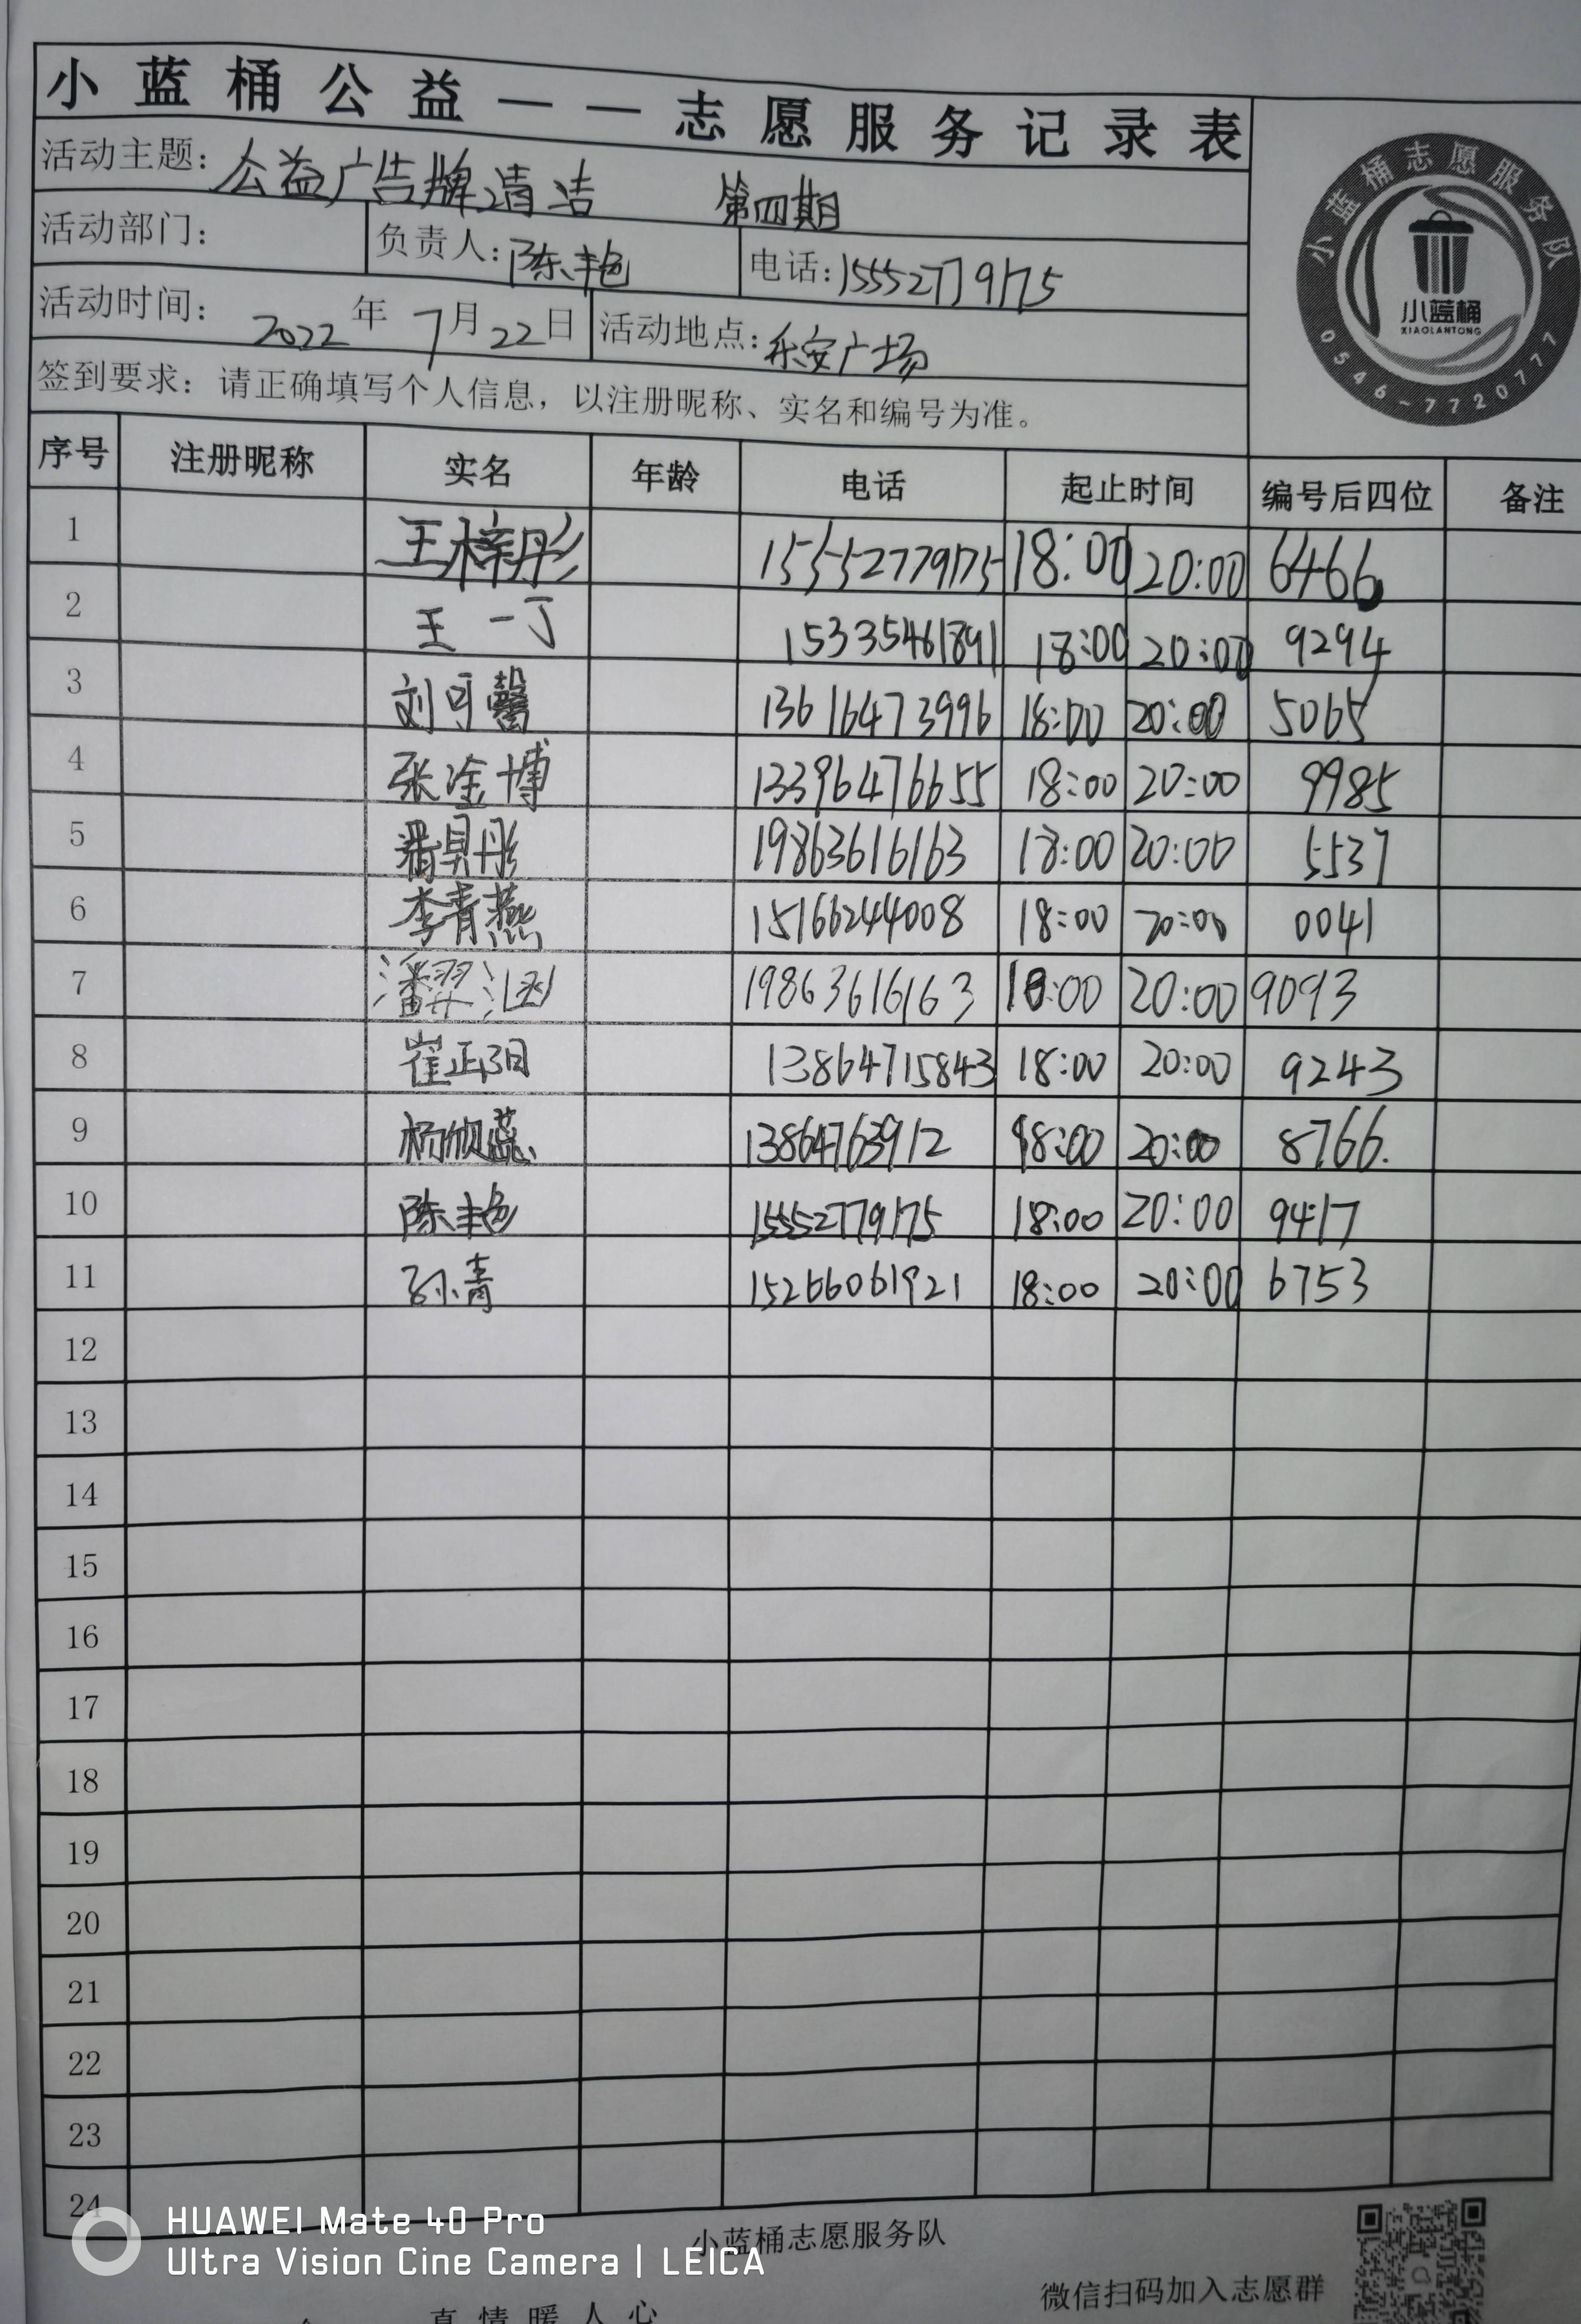 小蓝桶公益——志愿服务记录表
活动主题：公益广告牌清洁 第四期
活动部门： 负责人：陈丰色 电话：15552779175
活动时间：2022年7月22日 活动地点：乐安广场
签到要求：请正确填写个人信息，以注册昵称、实名和编号为准。
小蓝桶志愿服务队
小蓝桶
XIAOLANTONG
0546-7720777
序号 注册昵称 实名 年龄 电话 起止时间 编号后四位 备注
1 王梓彤 15552779175 18:00 20:00 6466
2 王一丁 15335461891 18:00 20:00 9294
3 刘可馨 13616473996 18:00 20:00 5065
4 张淦博 13396476655 18:00 20:00 9985
5 19863616163 18:00 20:00 5537
6 李青燕 15166244008 18:00 20:00 0041
7 潘羿汹 19863616163 18:00 20:00 9093
8 崔正阳 13864715843 18:00 20:00 9243
9 杨欣蕊 13864763912 18:00 20:00 8766.
10 陈丰色 15552779175 18:00 20:00 9417
11 孙青 15266061921 18:00 20:00 6753
12
13
14
15
16
17
18
19
20
21
22
23
24
HUAWEI Mate 40 Pro
Ultra Vision Cine Camera | LEICA
小蓝桶志愿服务队
微信扫码加入志愿群
真情暖人心